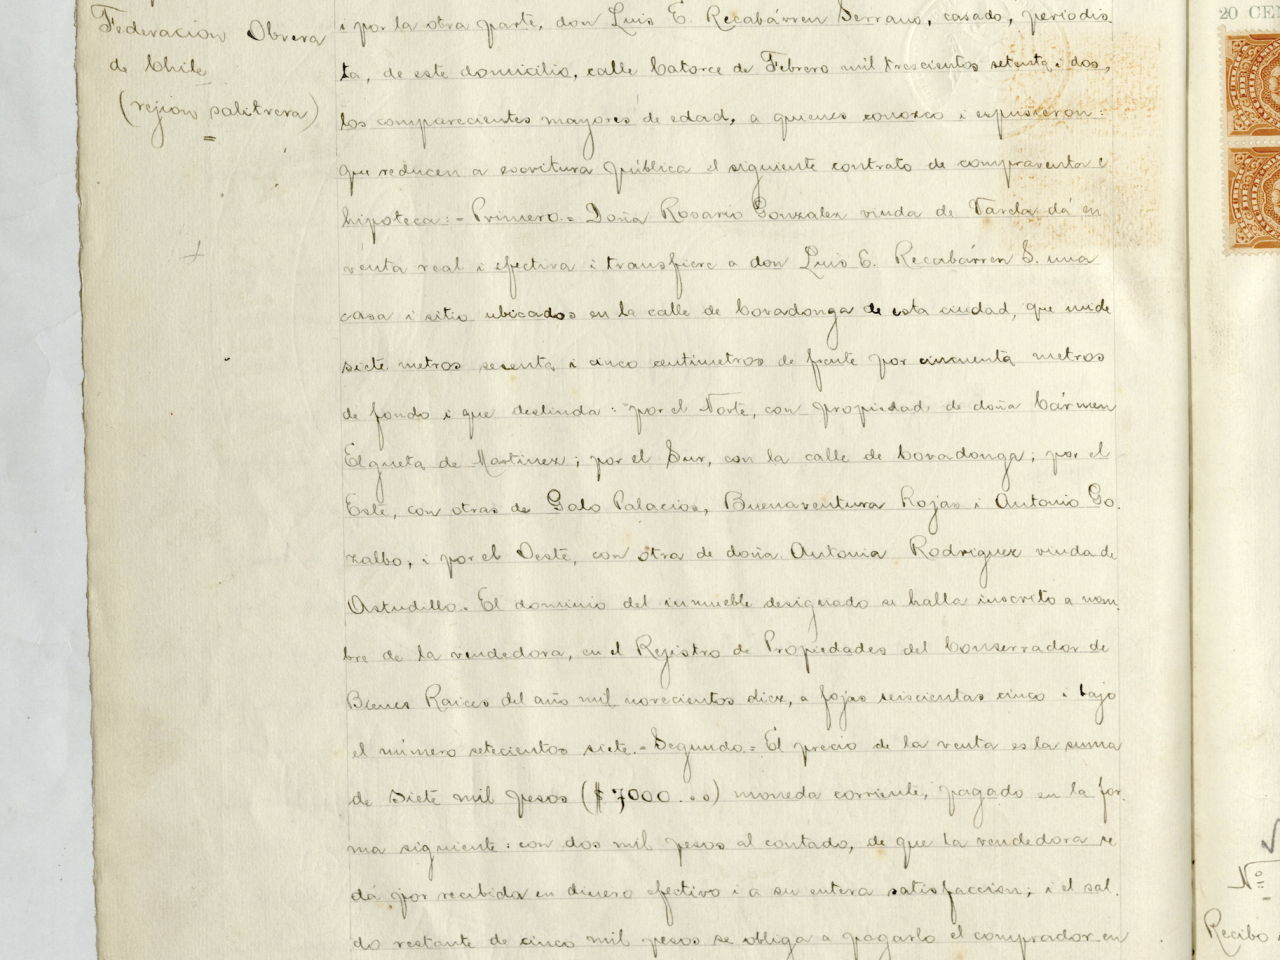 Federacion Obrera
de Chile
(rejion salitrera)
i por la otra parte, don Luis E. Recabárren Serrano, casado, periodis-
ta, de este domicilio, calle Catorce de Febrero mil trescientos setenta i dos,
los comparecientes mayores de edad, a quienes conozco i espusieron:
que reducen a escritura pública el siguiente contrato de compraventa e
hipoteca: = Primero. = Doña Rosario Gonzalez viuda de Varela dá en
venta real i efectiva i transfiere a don Luis E. Recabárren S. una
casa i sitio ubicados en la calle de Covadonga de esta ciudad, que mide
siete metros sesenta i cinco centímetros de frente por cincuenta metros
de fondo i que deslinda: por el Norte, con propiedad de doña Cármen
Elgueta de Martinez; por el Sur, con la calle de Covadonga; por el
Este, con otras de Galo Palacios, Buenaventura Rojas i Antonio Go-
zalbo, i por el Oeste, con otra de doña Antonia Rodriguez viuda de
Astudillo. El dominio del inmueble designado se halla inscrito a nom-
bre de la vendedora, en el Rejistro de Propiedades del Conservador de
Bienes Raices del año mil novecientos diez, a fojas seiscientas cinco i bajo
el número setecientos siete. = Segundo. = El precio de la venta es la suma
de siete mil pesos ($ 7000.oo) moneda corriente, pagado en la for-
ma siguiente: con dos mil pesos al contado, de que la vendedora se
dá por recibida en dinero efectivo i a su entera satisfaccion; i el sal-
do restante de cinco mil pesos se obliga a pagarlo el comprador en
20 CEN
Nº
Recibo